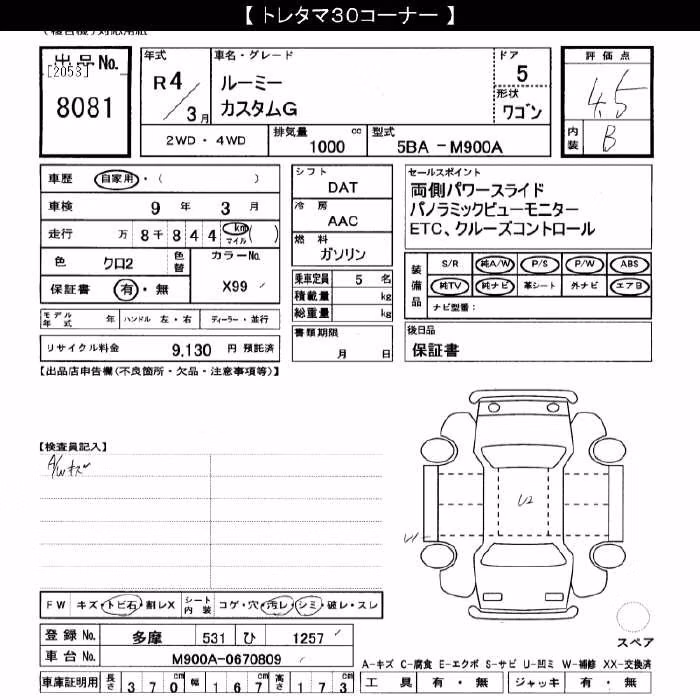 【 トレタマ30コーナー 】
出品No.
[2053]
8081
年式
R4/3月
車名・グレード
ルーミー
カスタムG
ドア
5
形状
ワゴン
評価点
4.5
内装
B
2WD・4WD
排気量
1000 cc
型式
5BA - M900A
車歴 自家用・( )
車検 9年 3月
走行 万8千844 km マイル( )
色 クロ2
色替
カラーNo.
X99
保証書 有・無
モデル年式 年 ハンドル 左・右 ディーラー・並行
リサイクル料金 9,130 円 預託済
シフト
DAT
冷房
AAC
燃料
ガソリン
乗車定員 5 名
積載量 kg
総重量 kg
書類期限
月 日
セールスポイント
両側パワースライド
パノラミックビューモニター
ETC、クルーズコントロール
装備品
S/R 純A/W P/S P/W ABS
純TV 純ナビ 革シート 外ナビ エアB
ナビ型番:
後日品
保証書
【出品店申告欄(不良箇所・欠品・注意事項等)】
【検査員記入】
A/Wキズ
U2
W1
FW キズ・トビ石・割レX シート内装 コゲ・穴・汚レ・シミ・破レ・スレ
登録No. 多摩 531 ひ 1257
車台No. M900A-0670809
車庫証明用 長さ 370cm 幅 167cm 高さ 173cm
スペア
A-キズ C-腐食 E-エクボ S-サビ U-凹ミ W-補修 XX-交換済
工具 有・無 ジャッキ 有・無